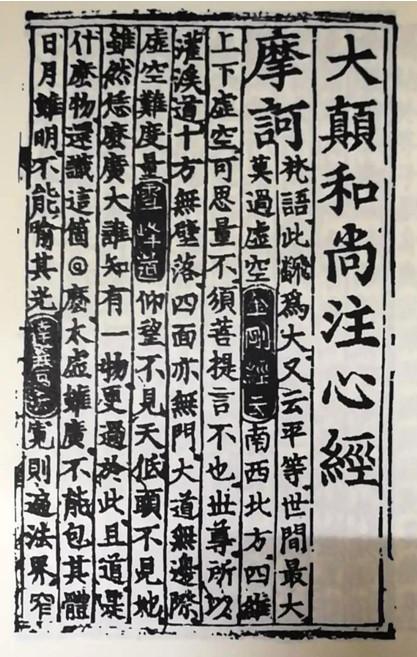 大顛和尚注心經
摩訶
梵語此飜為大又云平等世間最大
莫過虛空金剛經云南西北方四維
上下虛空可思量不須菩提言不也世尊所以
灌溪道十方無壁落四面亦無門大道無邊際
虛空難度量雪峰道仰望不見天低頭不見地
雖然恁麼廣大誰知有一物更過於此且道是
什麼物還識這箇◎麼太虛雖廣不能包其體
日月雖明不能喻其光達寬則遍法界窄